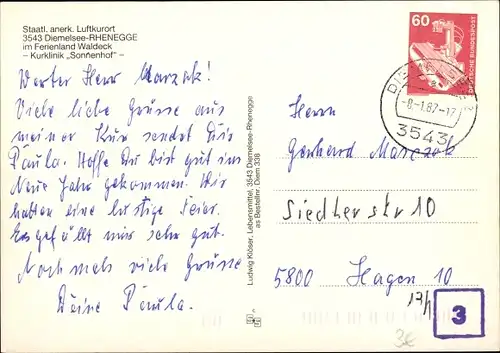 Staatl. anerk. Luftkurort
3543 Diemelsee-RHENEGGE
im Ferienland Waldeck
– Kurklinik „Sonnenhof" –
Werter Herr Marzak!
Viele liebe Grüsse aus
meiner Kur sendet Dir
Paula. Hoffe Du bist gut ins
Neue Jahr gekommen. Wir
hatten eine lustige Feier.
Es gefällt mir sehr gut.
Nochmals viele Grüsse
Deine Paula.
Ludwig Klöser, Lebensmittel, 3543 Diemelsee-Rhenegge
as Bestellnr. Diem 338
60
DEUTSCHE BUNDESPOST
-8-1.87-17
3543
Herrn
Gerhard
Siedlerstr 10
5800 Hagen 10
17/1
3
3€